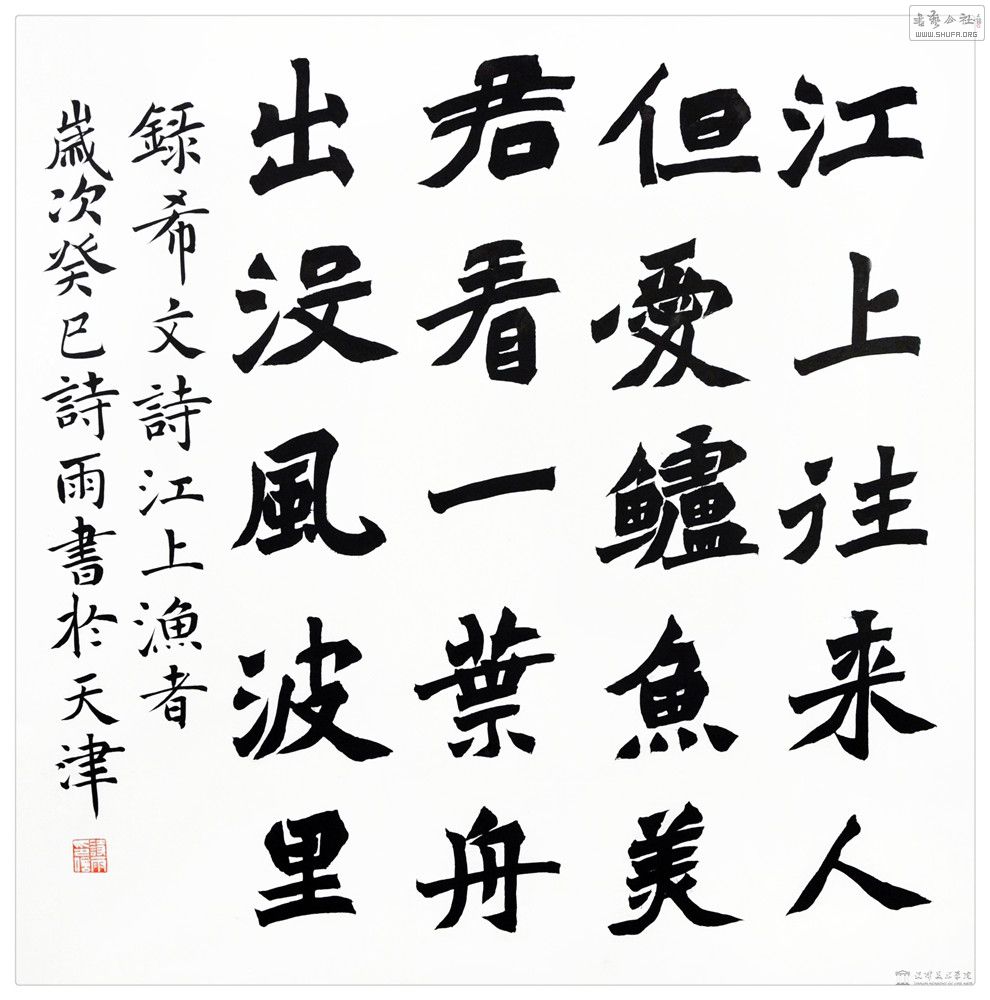 江上往来人
但愛鱸魚美
君看一葉舟
出没風波里
録希文詩江上漁者
歲次癸巳詩雨書於天津
书艺公社
WWW.SHUFA.ORG
天津美术学院